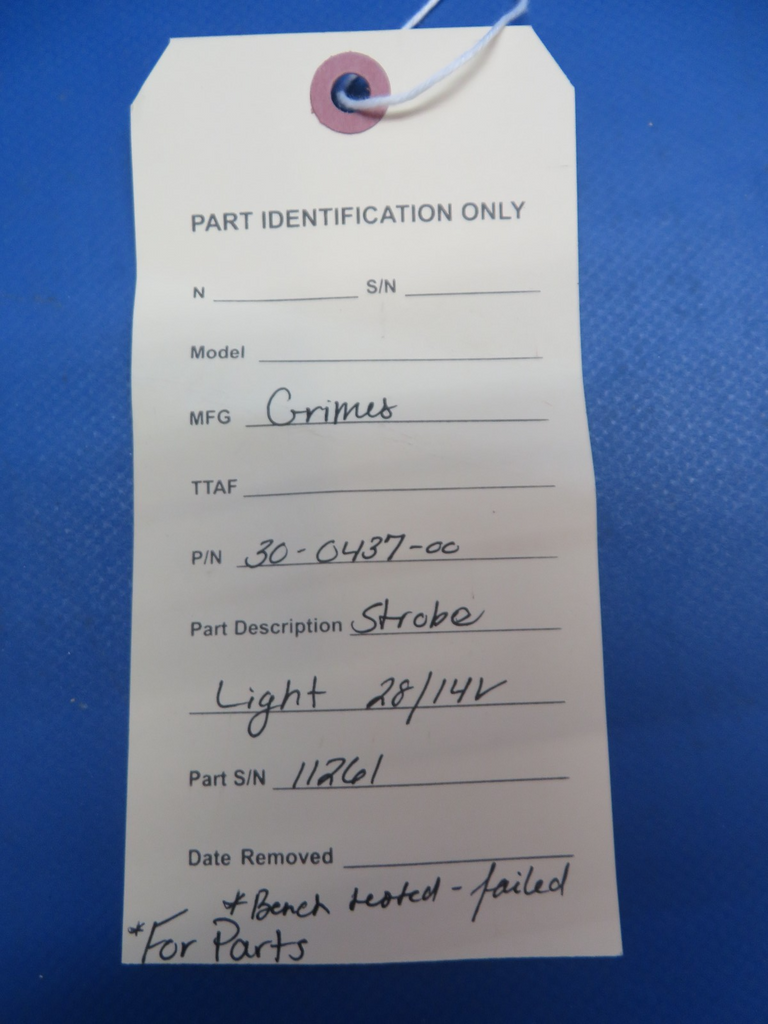 PART IDENTIFICATION ONLY
N S/N
Model
MFG Grimes
TTAF
P/N 30-0437-00
Part Description Strobe
Light 28/14V
Part S/N 11261
Date Removed
*Bench tested - failed
*For Parts